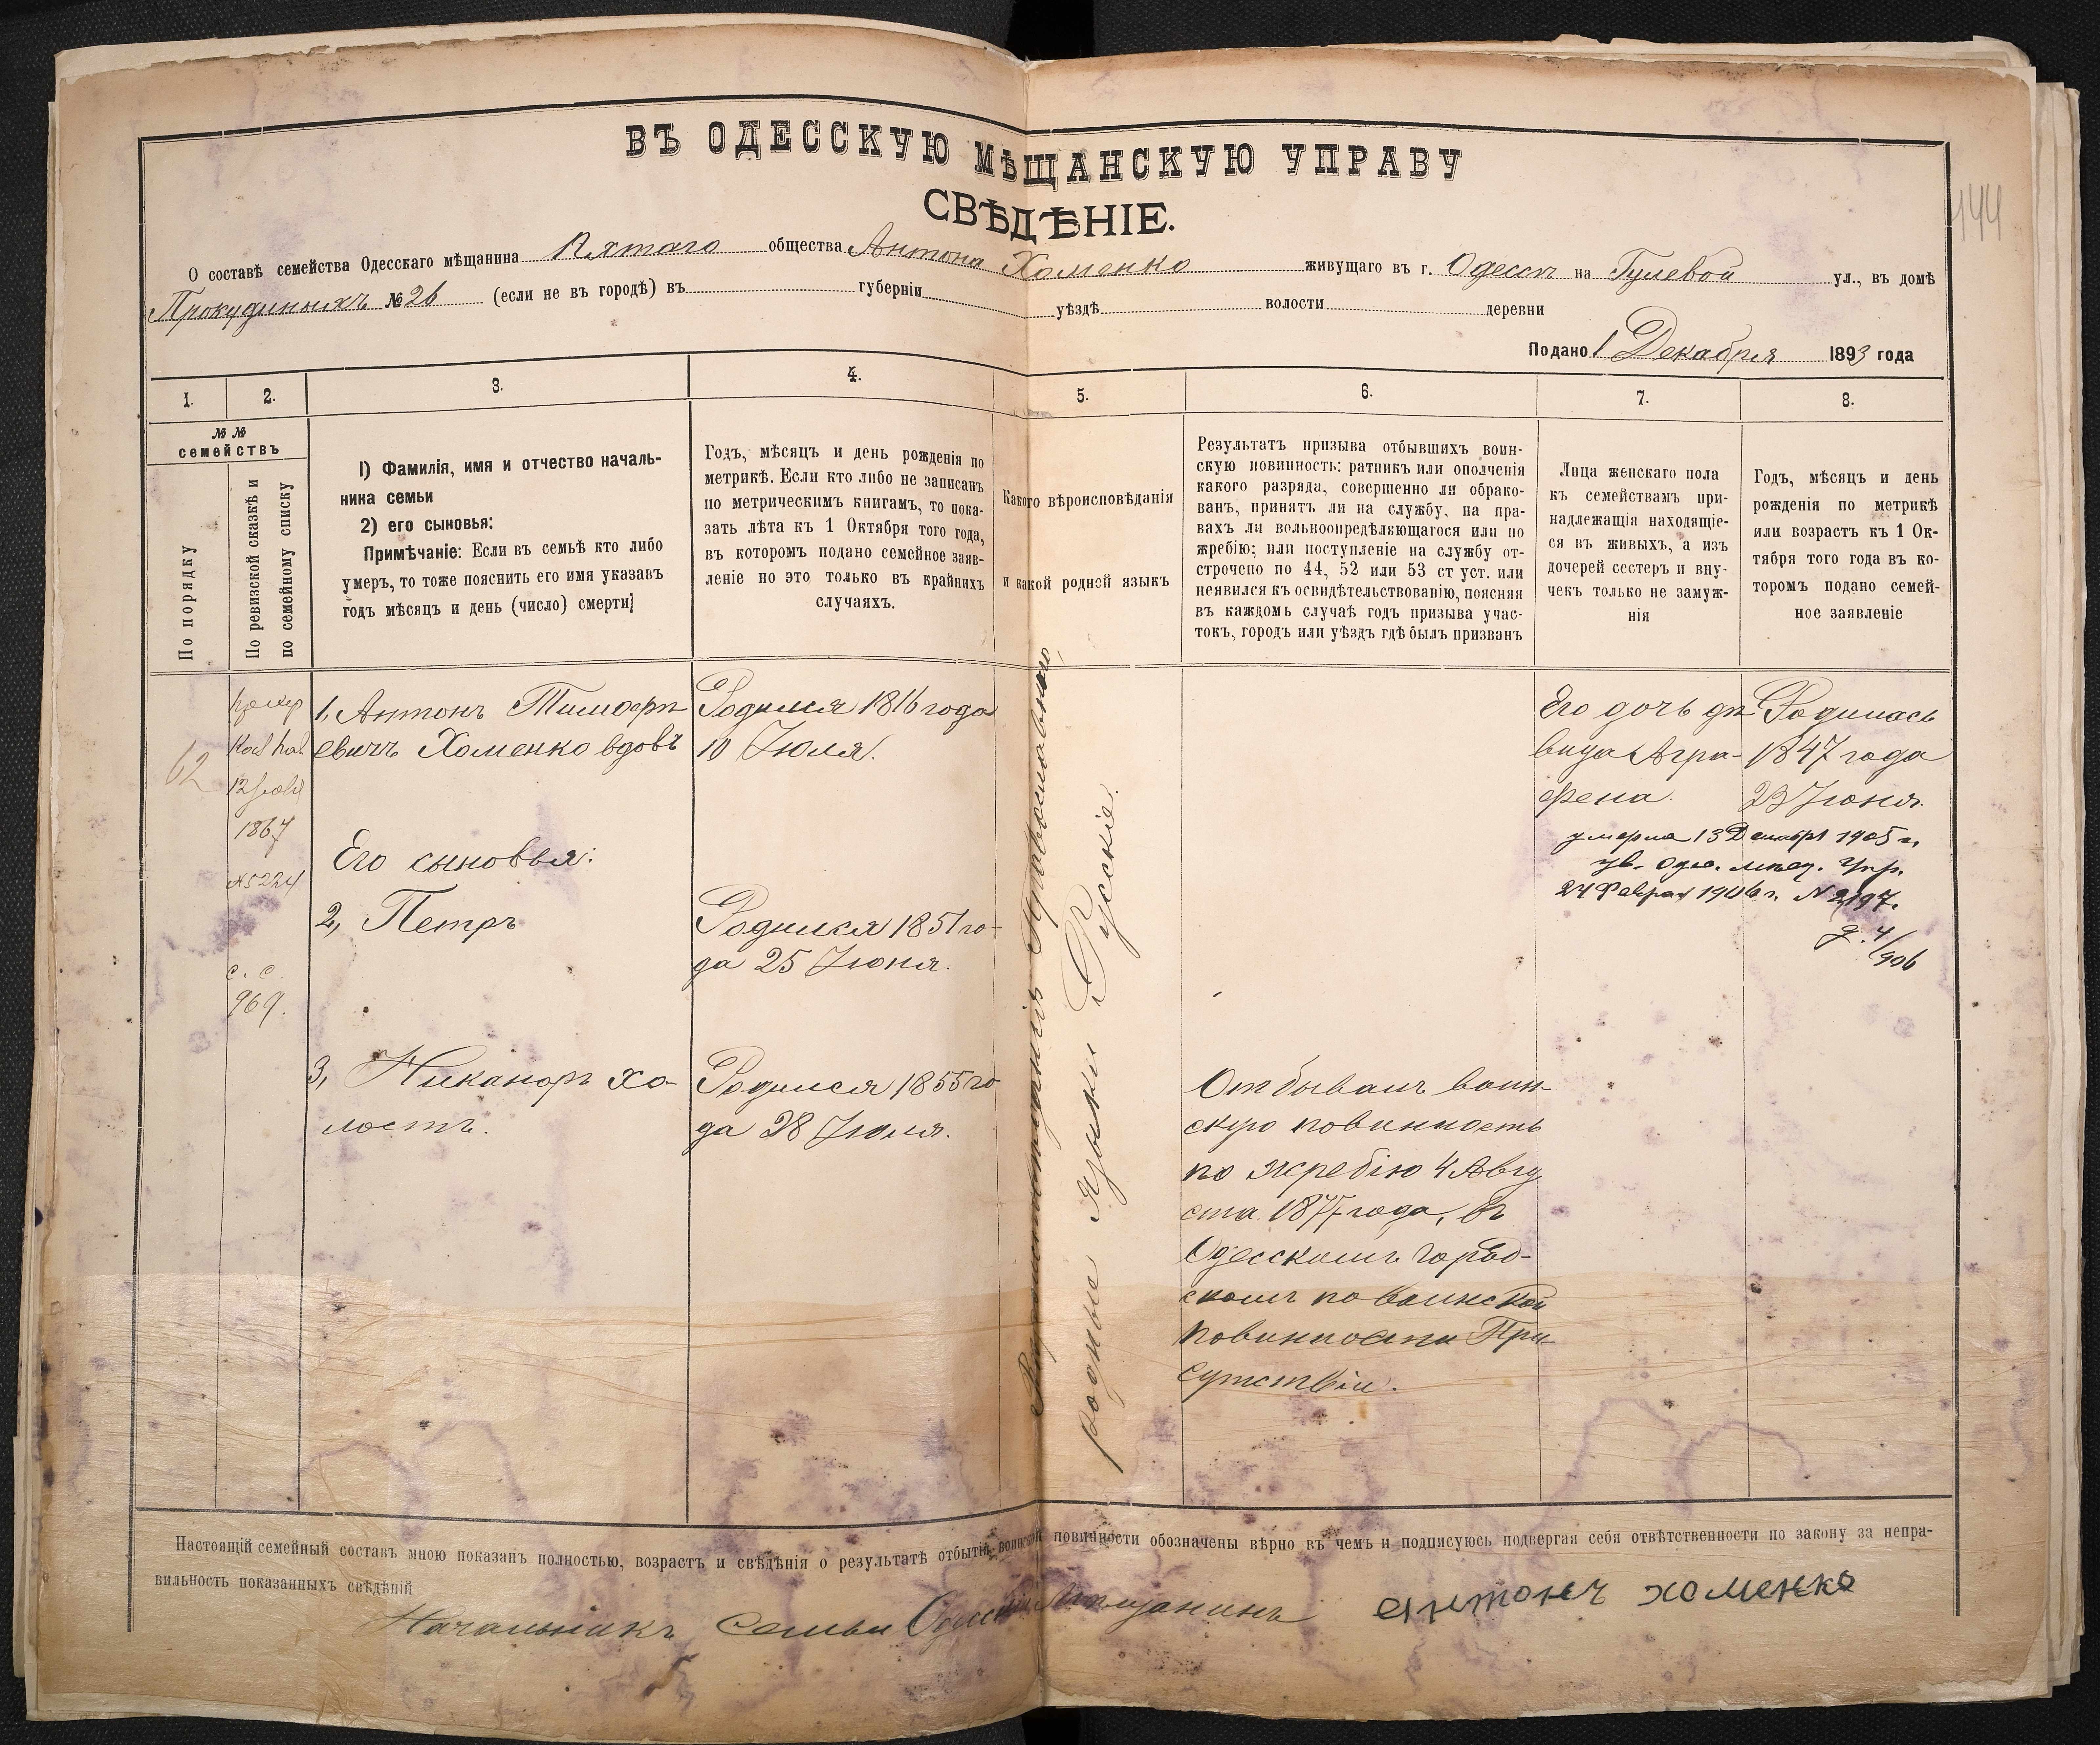 ВЪ ОДЕССКУЮ МѢЩАНСКУЮ УПРАВУ
СВѢДѢНІЕ.
144
О составѣ семейства Одесскаго мѣщанина Пятаго общества Антона Хоменко живущаго въ г. Одессѣ на Гулевой ул., въ домѣ
Прокудиныхъ № 26 (если не въ городѣ) въ губерніи уѣздѣ волости деревни
Подано 1 Декабря 1893 года
1.
2.
3.
4.
5.
6.
7.
8.
№№
семействъ
По порядку
По ревизской сказкѣ и
по семейному списку
1) Фамилія, имя и отчество началь-
ника семьи
2) его сыновья:
Примѣчаніе: Если въ семьѣ кто либо
умеръ, то тоже пояснить его имя указавъ
годъ мѣсяцъ и день (число) смерти;
Годъ, мѣсяцъ и день рожденія по
метрикѣ. Если кто либо не записанъ
по метрическимъ книгамъ, то пока-
зать лѣта къ 1 Октября того года,
въ которомъ подано семейное заяв-
леніе но это только въ крайнихъ
случаяхъ.
Какого вѣроисповѣданія
и какой родной языкъ
Результатъ призыва отбывшихъ воин-
скую повинность: ратникъ или ополченія
какого разряда, совершенно ли обрако-
ванъ, принятъ ли на службу, на пра-
вахъ ли вольноопредѣляющагося или по
жребію; или поступленіе на службу от-
строчено по 44, 52 или 53 ст уст. или
неявился къ освидѣтельствованію, поясняя
въ каждомъ случаѣ годъ призыва учас-
токъ, городъ или уѣздъ гдѣ былъ призванъ
Лица женскаго пола
къ семействамъ при-
надлежащія находящіе-
ся въ живыхъ, а изъ
дочерей сестеръ и вну-
чекъ только не замуж-
нія
Годъ, мѣсяцъ и день
рожденія по метрикѣ
или возрастъ къ 1 Ок-
тября того года въ ко-
торомъ подано семей-
ное заявленіе
62
1867
№5224
с. с.
969.
1, Антонъ Тимофѣ-
евичъ Хоменко вдовъ
Родился 1816 года
10 Іюля.
Его сыновья:
2, Петръ
Родился 1851 го-
да 25 Іюня.
3, Никаноръ хо-
лостъ.
Родился 1855 го
да 28 Іюля.
Вѣроисповѣданія Православнаго,
родные языки Русскіе.
Отбывалъ воин-
скую повинность
по жребію 4 Авгу
ста 1877 года, въ
Одесскомъ город-
скомъ по воинской
повинности При-
сутствіи.
Его дочь дѣ-
вица Агра-
фена.
Родилась
1847 года
23 Іюня.
умерла 13 Декабря 1905 г.
ув. Одес. мѣщ. Упр.
24 Февраля 1906 г. № 2197.
д. 4/906
Настоящій семейный составъ мною показанъ полностью, возрастъ и свѣдѣнія о результатѣ отбытія воинской повинности обозначены вѣрно въ чемъ и подписуюсь подвергая себя отвѣтственности по закону за непра-
вильность показанныхъ свѣдѣній
Начальникъ семьи Одесскій Мѣщанинъ антонъ хоменко